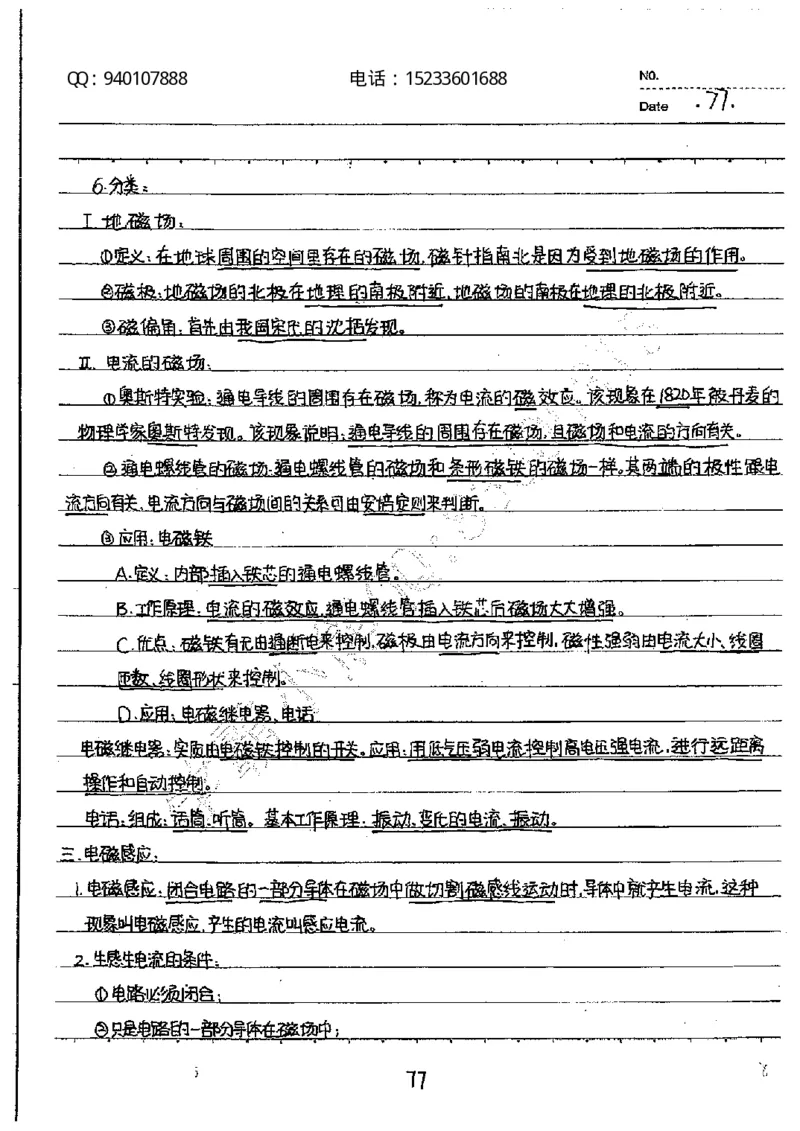 QQ：940107888 电话：15233601688 No.
Date .77.
6.分类：
Ⅰ.地磁场：
①定义：在地球周围的空间里存在的磁场，磁针指南北是因为受到地磁场的作用。
②磁极：地磁场的北极在地理的南极附近，地磁场的南极在地理的北极附近。
③磁偏角：首先由我国宋代的沈括发现。
Ⅱ.电流的磁场：
①奥斯特实验：通电导线的周围存在磁场，称为电流的磁效应。该现象在1820年被丹麦的
物理学家奥斯特发现。该现象说明：通电导线的周围存在磁场，且磁场和电流的方向有关。
②通电螺线管的磁场：通电螺线管的磁场和条形磁铁的磁场一样。其两端的极性跟电
流方向有关，电流方向与磁场间的关系可由安培定则来判断。
③应用：电磁铁
A.定义：内部插入铁芯的通电螺线管。
B.工作原理：电流的磁效应，通电螺线管插入铁芯后磁场大大增强。
C.优点：磁铁有无由通断电来控制，磁极由电流方向来控制，磁性强弱由电流大小、线圈
匝数、线圈形状来控制。
D.应用：电磁继电器、电话
电磁继电器：实质由电磁铁控制的开关。应用：用低电压弱电流控制高电压强电流，进行远距离
操作和自动控制。
电话：组成：话筒、听筒。基本工作原理：振动、变化的电流、振动。
三.电磁感应：
1.电磁感应：闭合电路的一部分导体在磁场中做切割磁感线运动时，导体中就产生电流，这种
现象叫电磁感应，产生的电流叫感应电流。
2.生感生电流的条件：
①电路必须闭合；
②只是电路的一部分导体在磁场中；
77